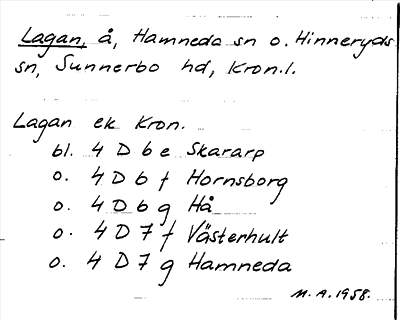 Lagan, å, Hamneda sn o. Hinneryds
sn, Sunnerbo hd, Kron.l.
Lagan ek Kron.
bl. 4 D 6 e Skararp
o. 4 D 6 f Hornsborg
o. 4 D 6 g Hå
o. 4 D 7 f Västerhult
o. 4 D 7 g Hamneda
M.A. 1958.